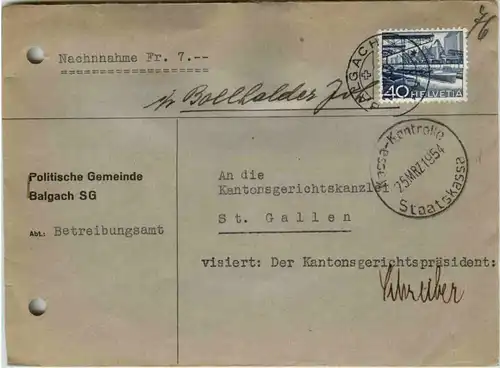 76
Nachnnahme Fr. 7.--
BALGACH
40
HELVETIA
Kassa-Kontrolle
25.MRZ.1954
Staatskassa
Politische Gemeinde
Balgach SG
Abt.: Betreibungsamt
An die
Kantonsgerichtskanzlei
St. Gallen
visiert: Der Kantonsgerichtspräsident:
Schreiber